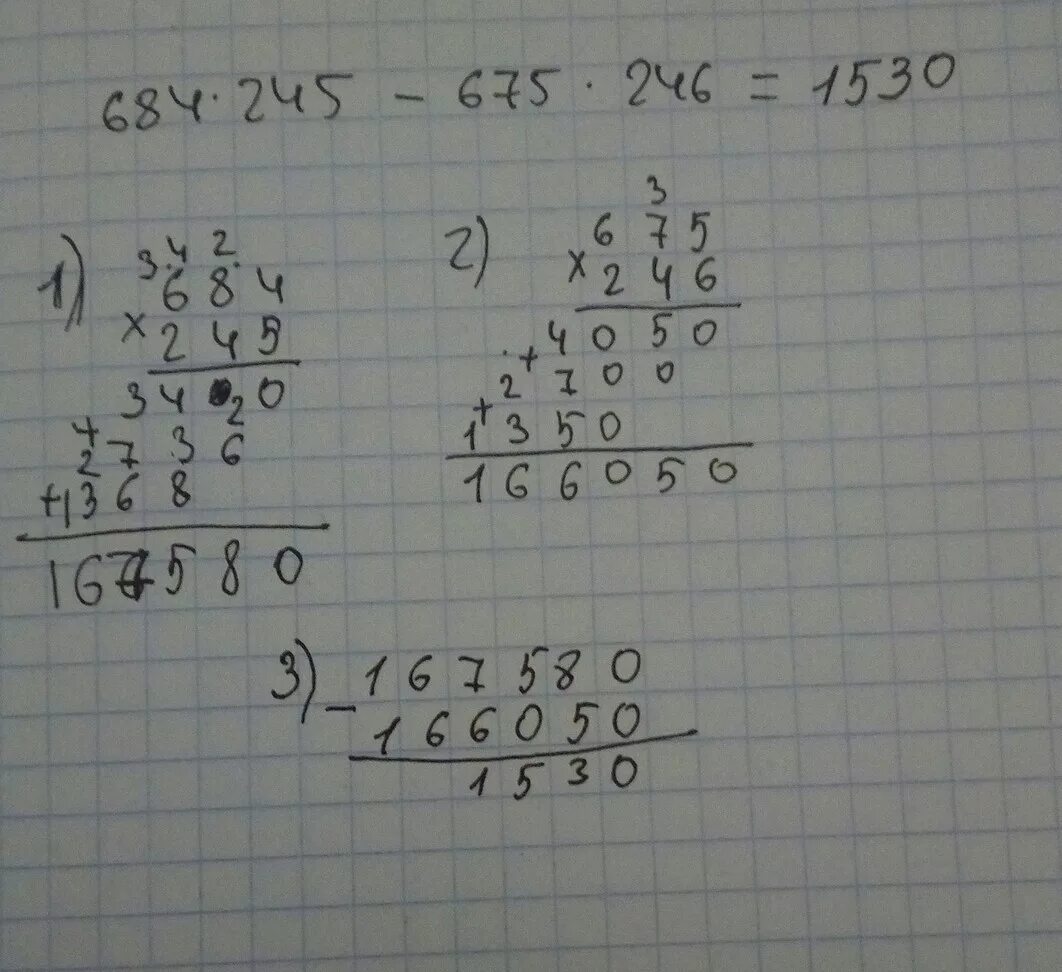 684 · 245 − 675 · 246 = 1530
1)
3 4 2
684
× 245
3420
+ 2736
+ 1368
167580
2)
3
675
× 246
4050
+ 2700
+ 1350
166050
3)
167580
− 166050
1530